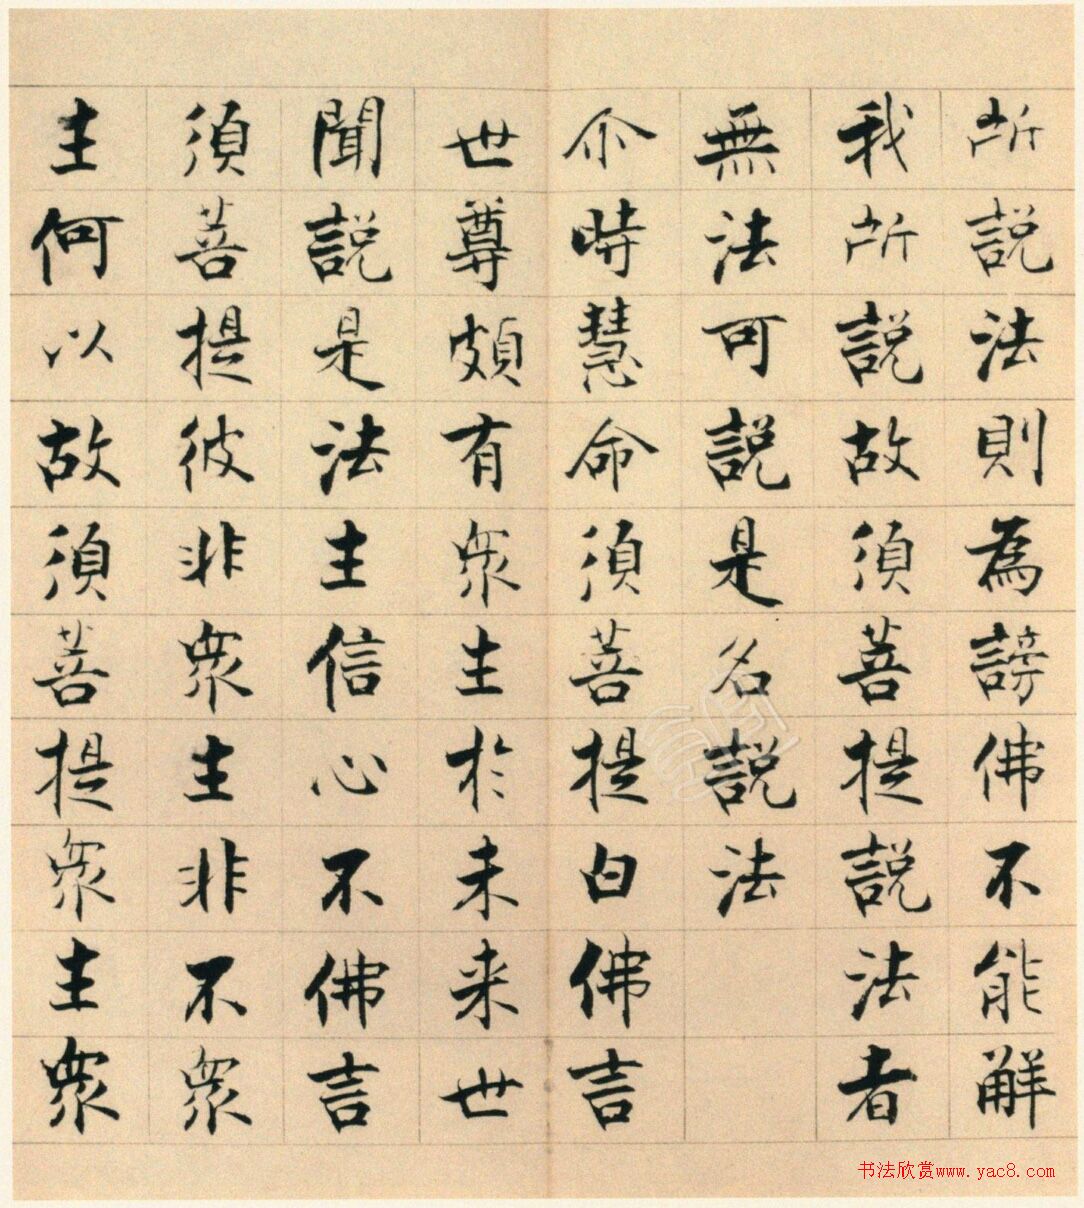 所説法則為謗佛不能解
我所説故須菩提説法者
無法可説是名説法
尒時慧命須菩提白佛言
世尊頗有衆生於未来世
聞説是法生信心不佛言
須菩提彼非衆生非不衆
生何以故須菩提衆生衆
书法欣赏www.yac8.com